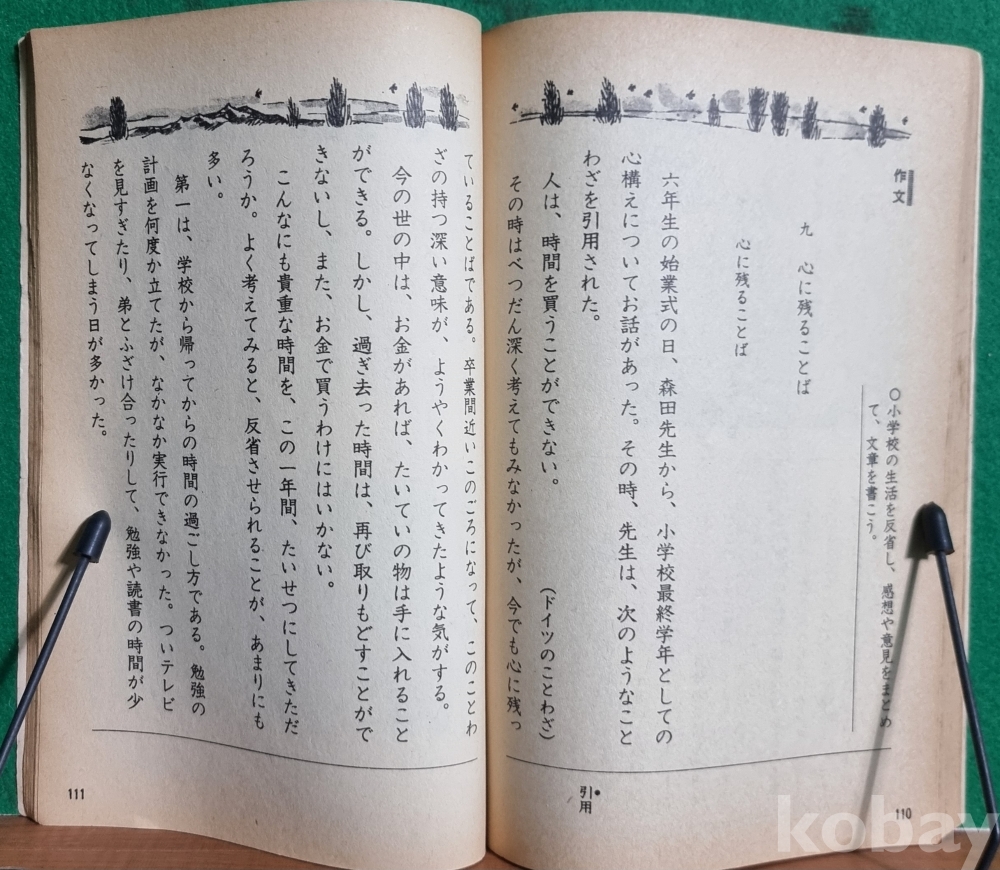 作文
○小学校の生活を反省し、感想や意見をまとめ
て、文章を書こう。
九 心に残ることば
心に残ることば
六年生の始業式の日、森田先生から、小学校最終学年としての
心構えについてお話があった。その時、先生は、次のようなこと
わざを引用された。
人は、時間を買うことができない。 (ドイツのことわざ)
その時はべつだん深く考えてもみなかったが、今でも心に残っ
•引用
110
ていることばである。卒業間近いこのごろになって、このことわ
ざの持つ深い意味が、ようやくわかってきたような気がする。
今の世の中は、お金があれば、たいていの物は手に入れること
ができる。しかし、過ぎ去った時間は、再び取りもどすことがで
きないし、また、お金で買うわけにはいかない。
こんなにも貴重な時間を、この一年間、たいせつにしてきただ
ろうか。よく考えてみると、反省させられることが、あまりにも
多い。
第一は、学校から帰ってからの時間の過ごし方である。勉強の
計画を何度か立てたが、なかなか実行できなかった。ついテレビ
を見すぎたり、弟とふざけ合ったりして、勉強や読書の時間が少
なくなってしまう日が多かった。
111
kobay